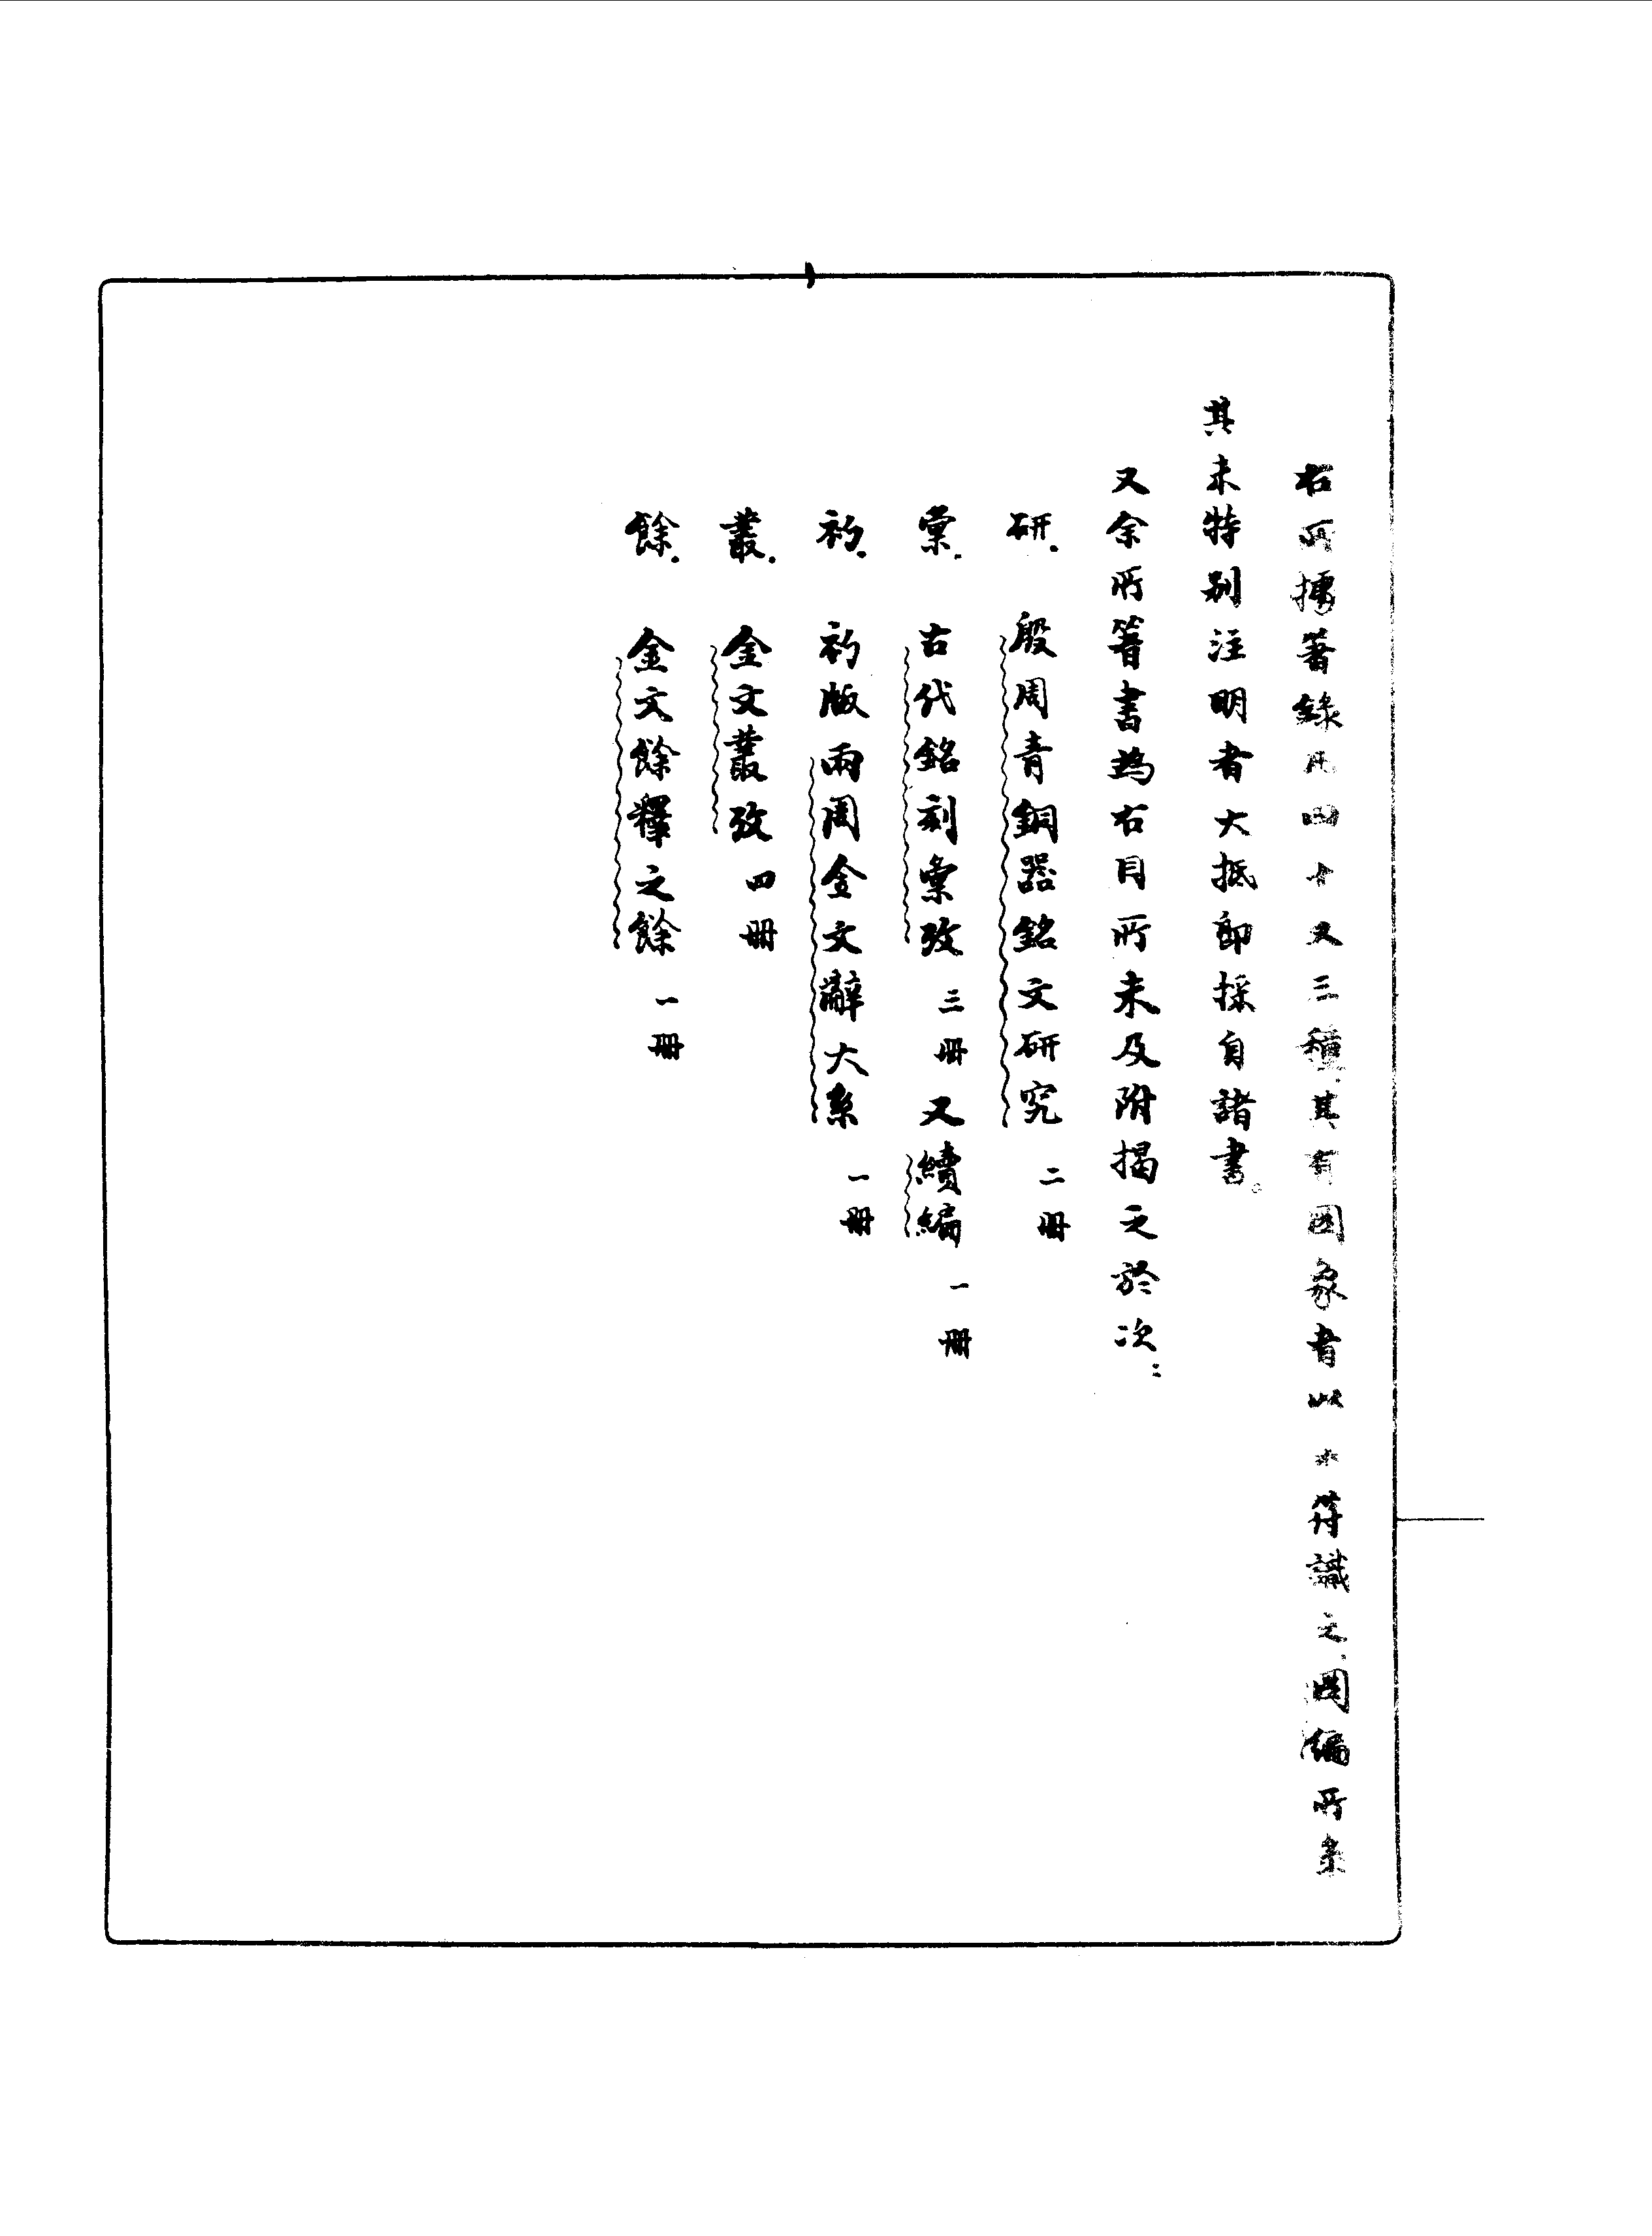 右所據著錄凡四十又三種，其有圖象者以＊符識之。圖編所系
其未特別注明者大抵即採自諸書。
又余所著書為右目所未及附揭之於次：
研．　殷周青銅器銘文研究　二冊
彙．　古代銘刻彙攷　三冊　又續編　一冊
初．　初版兩周金文辭大系　一冊
叢．　金文叢攷　四冊
餘．　金文餘釋之餘　一冊